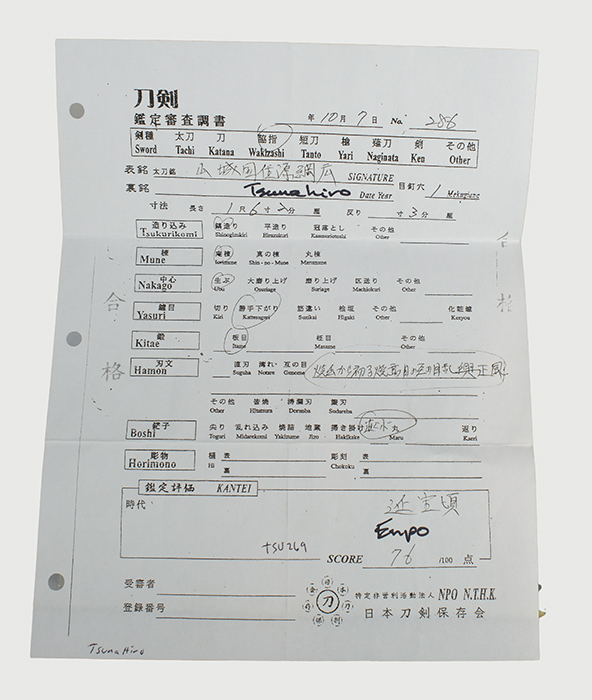 刀剣
鑑定審査調書 年 10 月 7 日 No. 286
剣種 太刀 刀 脇指 短刀 槍 薙刀 剣 その他
Sword Tachi Katana Wakizashi Tanto Yari Naginata Ken Other
表銘 太刀銘 山城国住源綱広 SIGNATURE
裏銘 Tsunahiro Date Year 目釘穴 1 Mekugiana
寸法 長さ 1 尺 6 寸 2 分 厘 反り 寸 3 分 厘
造り込み 鎬造り 平造り 冠落とし その他
Tsukurikomi Shinogizukuri Hirazukuri Kanmuriotoshi Other
棟 庵棟 真の棟 丸棟
Mune Iorimune Shin-no-Mune Marumune
中心 生ぶ 大磨り上げ 磨り上げ 区送り その他
Nakago Ubu Osuriage Suriage Machiokuri Other
合
鑢目 切り 勝手下がり 筋違い 桧垣 その他 化粧鑢
Yasuri Kiri Kattesagari Sujikai Higaki Other Kesyou
鍛 板目 柾目 その他
Kitae Itame Masame Other
格
刃文 直刃 湾れ 互の目
Hamon Suguha Notare Gonome
その他 皆焼 濤瀾刃 簾刃
Other Hitatsura Doranba Sudareba
鋩子 尖り 乱れ込み 焼詰 地蔵 掃き掛け 丸 返り
Boshi Togari Midarekomi Yakizume Jizo Hakikake Maru Kaeri
彫物 樋 表 彫刻 表
Horimono Hi 裏 Chokoku 裏
鑑定評価 KANTEI
時代 延宝頃
Enpo
TSU269
SCORE 76 /100 点
受審者
登録番号
刀
特定非営利活動法人 NPO N.T.H.K.
日本刀剣保存会
TsunaHiro